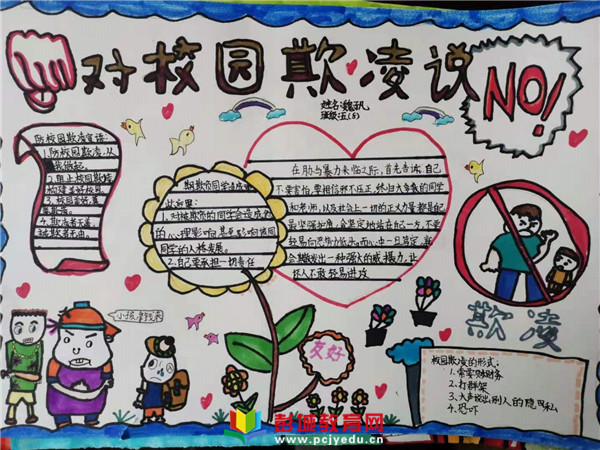 对校园欺凌说
NO!
姓名:魏帆
班级:五(6)
防校园欺凌宣语:
1.防校园欺凌,从
我做起。
2.阻止校园欺凌
构建美好校园
在胁与暴力来临之际,首先告诉自己
不要害怕,要相信邪不压正,终归大多数的同学
和老师,以及社会上一切的正义力量都是自己
最坚强的后盾,会坚定地站在自己一方,不要
轻易向恶势力低头,而一旦内心笃定,就
会散发出一种强大的威慑力,让
坏人不敢轻易进攻
欺凌别同学造成的
后果:
1.对被欺负的同学会造成
的心理影响甚至影响被同
同学的人格发展。
2.自己要承担一切责任
欺凌
小孩,拿钱来
友好
校园欺凌的形式:
1.索要财物
2.打群架
3.大声说出别人的隐私
4.恐吓
彭城教育网
www.pcjyedu.cn